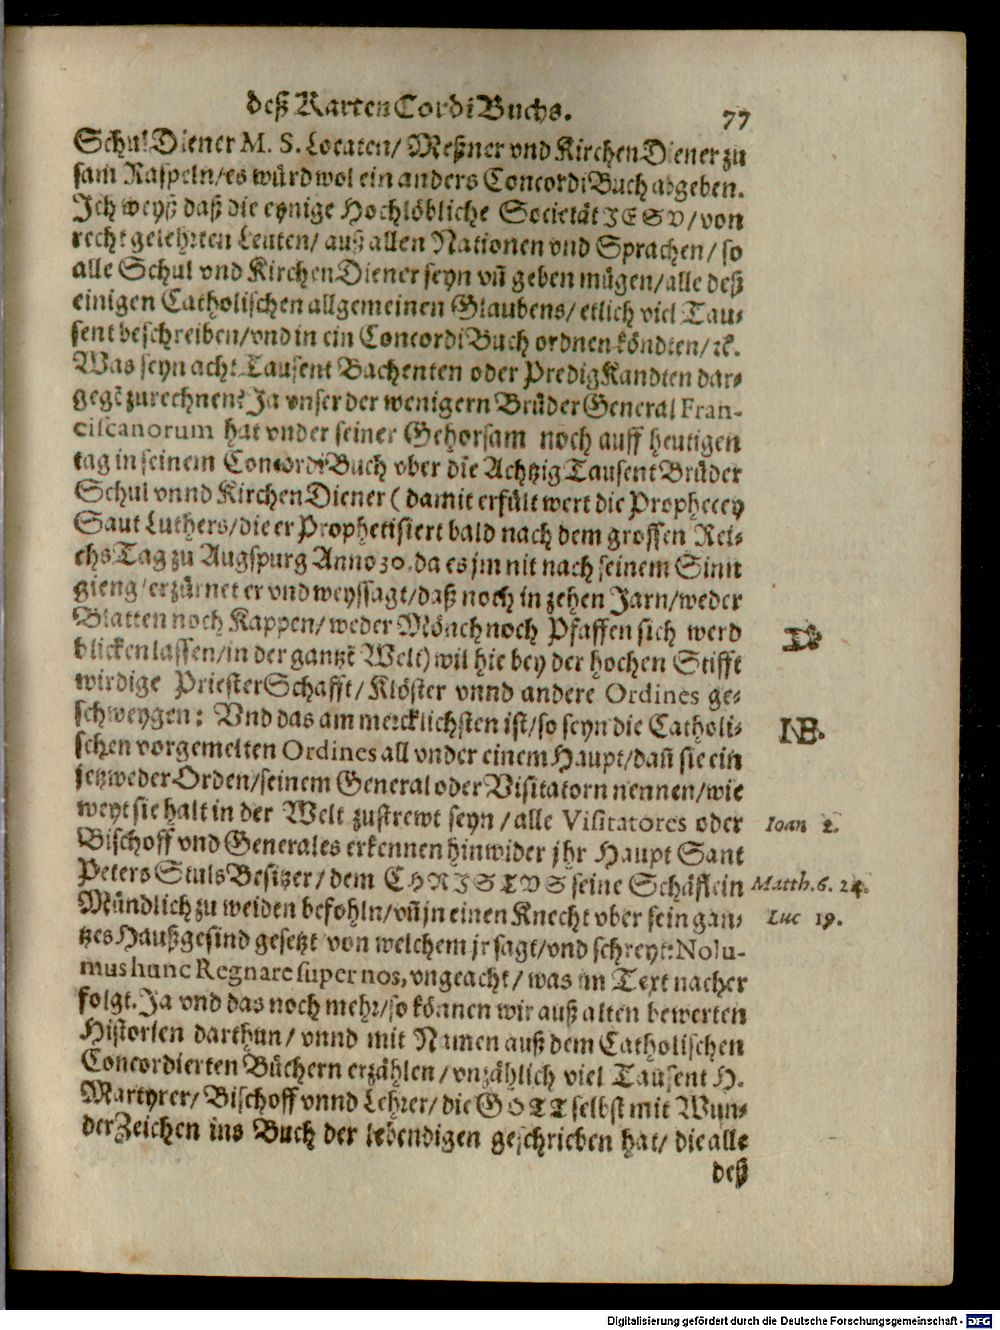 deß KartenCordiBuchs. 77
SchulDiener M. S. Locaten/ Meßner vnd KirchenDiener zu
sam Raspeln/es würd wol ein anders ConcordiBuch abgeben.
Ich weyß daß die eynige Hochlöbliche Societät JESV/ von
recht gelehrten Leuten/ auß allen Nationen vnd Sprachen/ so
alle Schul vnd KirchenDiener seyn vñ geben mügen/ alle deß
einigen Catholischen allgemeinen Glaubens/ etlich viel Tau-
sent beschreiben/vnd in ein ConcordiBuch ordnen köndten/ ꝛc.
Was seyn acht Tausent Bachenten oder PredigKandten dar-
gegē zurechnen? Ja vnser der wenigern Brüder General Fran-
ciscanorum hat vnder seiner Gehorsam noch auff heutigen
tag in seinem ConcordiBuch vber die Achtzig Tausent Brüder
Schul vnnd KirchenDiener ( damit erfült wert die Prophecey
Saut Luthers/die er Prophetisiert bald nach dem grossen Rei-
chsTag zu Augspurg Anno 30. da es jm nit nach seinem Sinn
gieng/ erzürnet er vnd weyssagt/daß noch in zehen Jarn/weder
Blatten noch Kappen/ weder Mönch noch Pfaffen sich werd
blicken lassen/in der gantzē Welt) wil hie bey der hochen Stifft
wirdige PriesterSchafft/ Klöster vnnd andere Ordines ge-
schweygen: Vnd das am mercklichsten ist/ so seyn die Catholi-
schen vorgemelten Ordines all vnder einem Haupt/dañ sie ein
jeyweder Orden/seinem General oder Visitatorn nennen/wie
weyt sie halt in der Welt zustrewt seyn / alle Visitatores oder
Bischoff vnd Generales erkennen hinwider jhr Haupt Sant
Peters StulsBesitzer/ dem CHRISTVS seine Schäflein
Mündlich zu weiden befohln/ vñ jn einen Knecht vber sein gan-
tzes Haußgesind gesetzt von welchem jr sagt/vnd schreyt: Nolu-
mus hunc Regnare super nos, vngeacht/ was im Text nacher
folgt. Ja vnd das noch mehr/so können wir auß alten bewerten
Historien darthun/ vnnd mit Namen auß dem Catholischen
Concordierten Büchern erzählen/ vnzählich viel Tausent H.
Martyrer/ Bischoff vnnd Lehrer/ die GOTT selbst mit Wun-
derZeichen ins Buch der lebendigen geschrieben hat/ die alle
deß
NB.
Ioan 2.
Matth. 6. 24.
Luc 19.
Digitalisierung gefördert durch die Deutsche Forschungsgemeinschaft - DFG